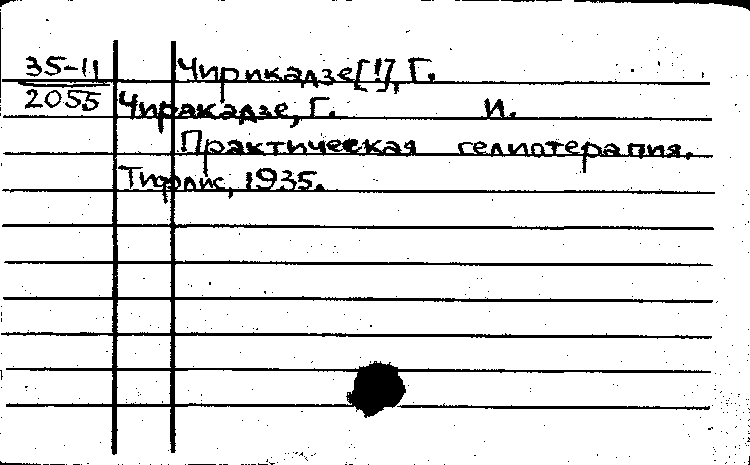 35-11
2055
Чирикадзе[!], Г.
Чиракадзе, Г. И.
Практическая гелиотерапия.
Тифлис, 1935.